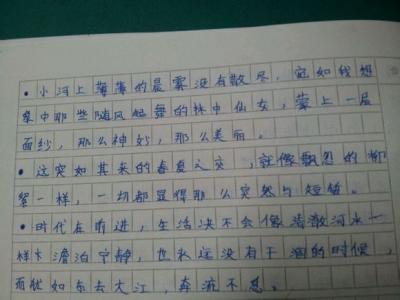 •小河上薄薄的晨雾没有散尽，宛如我想
象中那些随风起舞的林中仙女，蒙上一层
面纱，那么神妙，那么美丽。
•这突如其来的春夏之交，就像飘忽的柳
絮一样，一切都显得那么突然与短暂。
•时代在前进，生活决不会像浩渺河水一
样澹泊宁静，也永远没有干涸的时候，
而犹如东去大江，奔流不息。